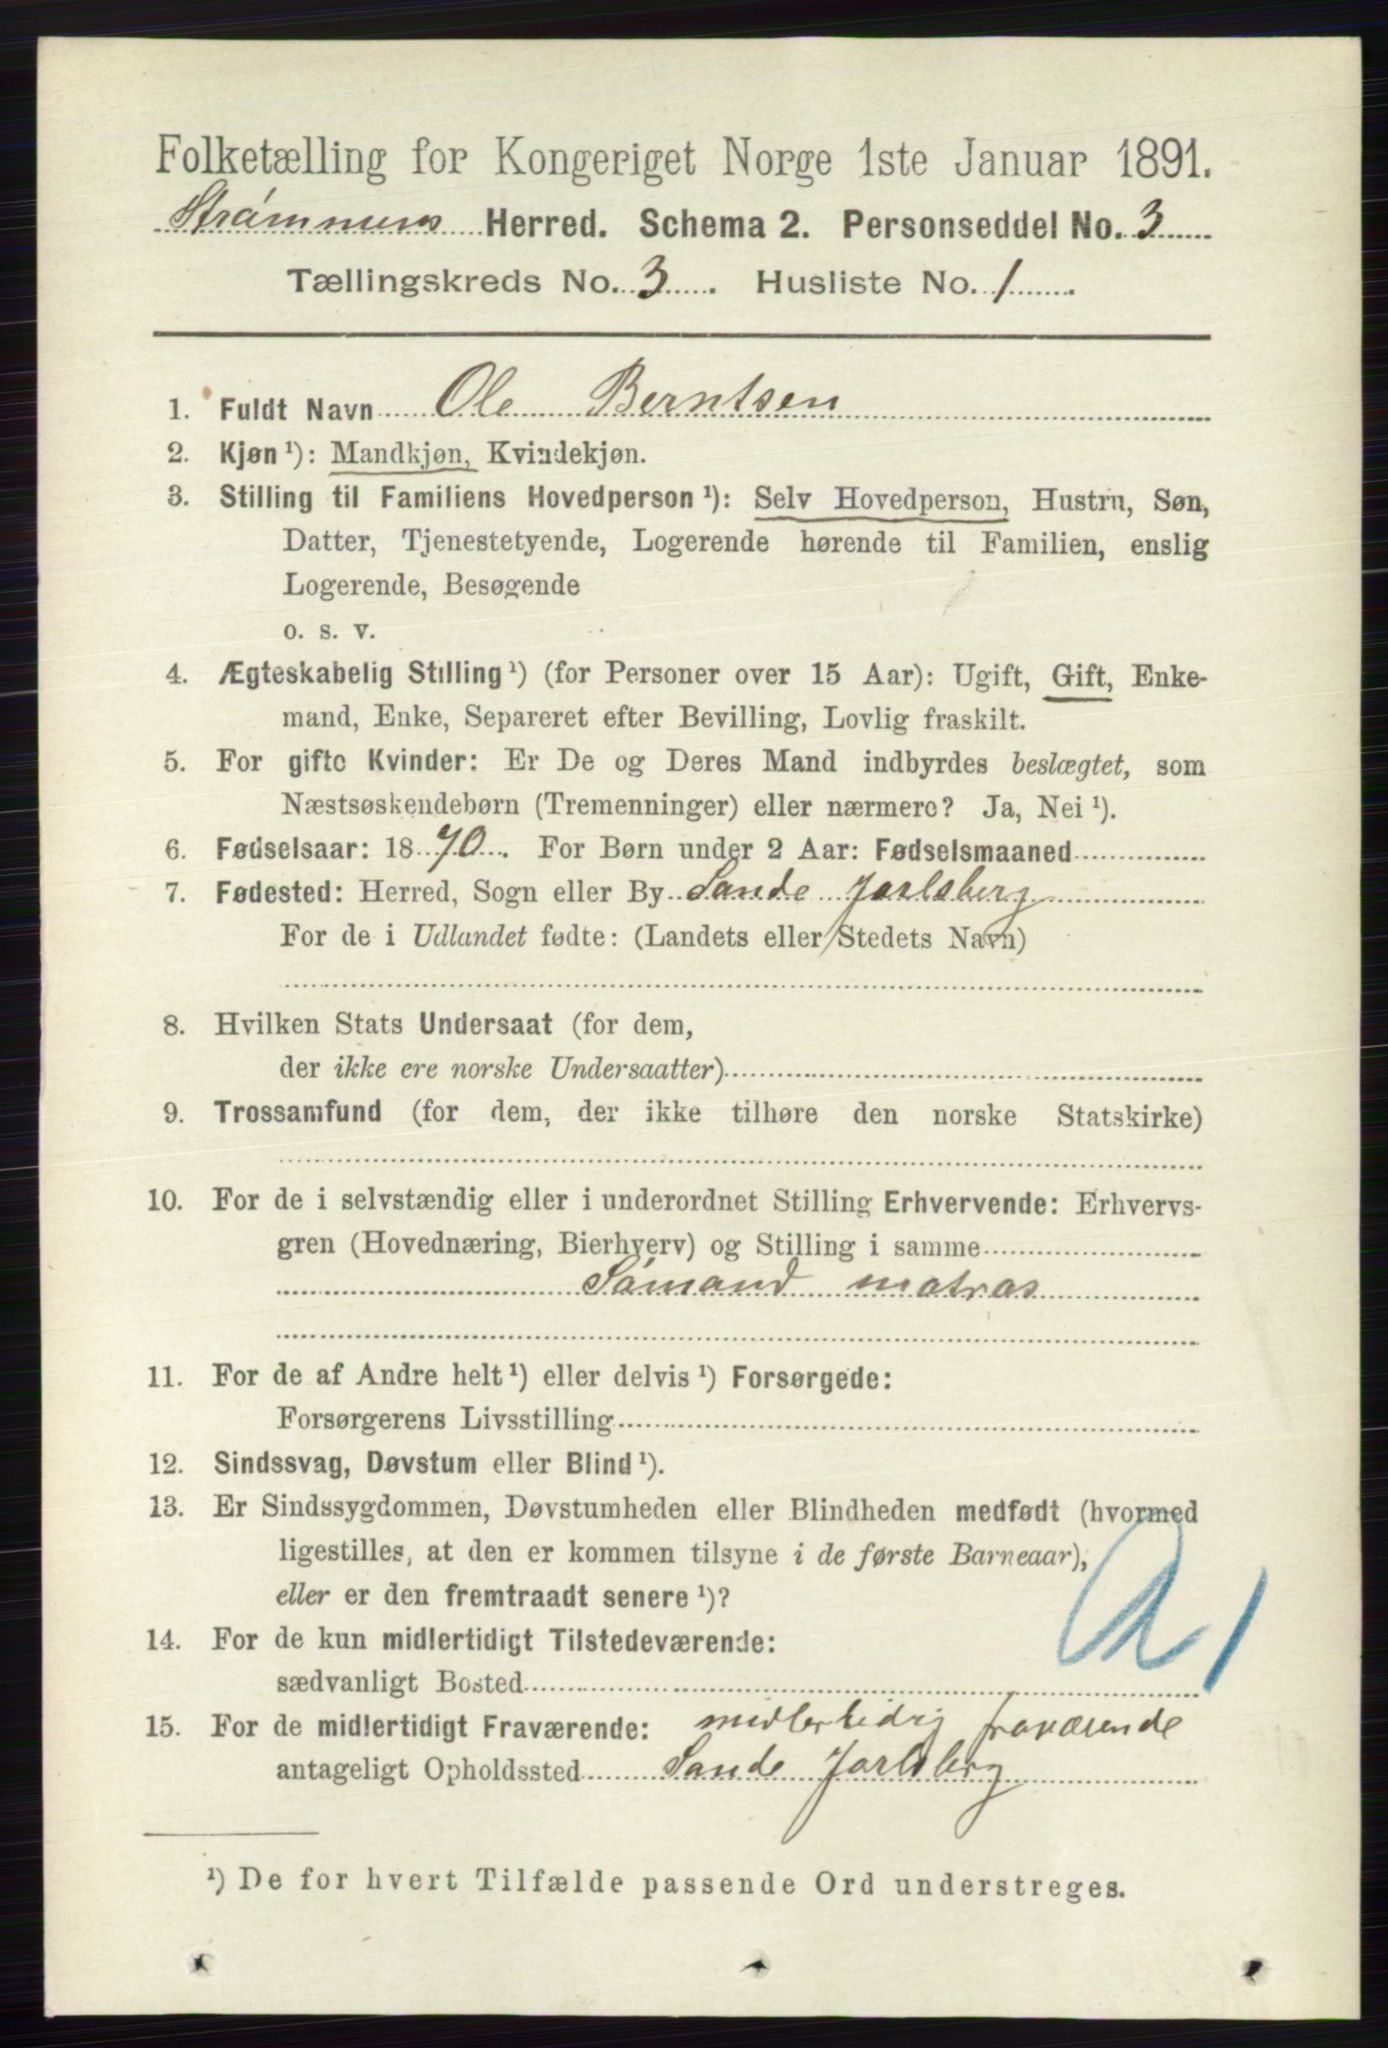 Folketælling for Kongeriget Norge 1ste Januar 1891.
Strømmens Herred. Schema 2. Personseddel No. 3
Tællingskreds No. 3. Husliste No. 1.
1. Fuldt Navn Ole Berntsen
2. Kjøn ¹): Mandkjøn, Kvindekjøn.
3. Stilling til Familiens Hovedperson ¹): Selv Hovedperson, Hustru, Søn,
Datter, Tjenestetyende, Logerende hørende til Familien, enslig
Logerende, Besøgende
o. s. v.
4. Ægteskabelig Stilling ¹) (for Personer over 15 Aar): Ugift, Gift, Enke-
mand, Enke, Separeret efter Bevilling, Lovlig fraskilt.
5. For gifte Kvinder: Er De og Deres Mand indbyrdes beslægtet, som
Næstsøskendebørn (Tremenninger) eller nærmere? Ja, Nei ¹).
6. Fødselsaar: 1870. For Børn under 2 Aar: Fødselsmaaned
7. Fødested: Herred, Sogn eller By Sande Jarlsberg
For de i Udlandet fødte: (Landets eller Stedets Navn)
8. Hvilken Stats Undersaat (for dem,
der ikke ere norske Undersaatter)
9. Trossamfund (for dem, der ikke tilhøre den norske Statskirke)
10. For de i selvstændig eller i underordnet Stilling Erhvervende: Erhvervs-
gren (Hovednæring, Bierhverv) og Stilling i samme
Sømand matros
11. For de af Andre helt ¹) eller delvis ¹) Forsørgede:
Forsørgerens Livsstilling
12. Sindssvag, Døvstum eller Blind ¹).
13. Er Sindssygdommen, Døvstumheden eller Blindheden medfødt (hvormed
ligestilles, at den er kommen tilsyne i de første Barneaar),
eller er den fremtraadt senere ¹)?
14. For de kun midlertidigt Tilstedeværende:
sædvanligt Bosted
15. For de midlertidigt Fraværende: midlertidig fraværende
antageligt Opholdssted Sande Jarlsberg
¹) De for hvert Tilfælde passende Ord understreges.